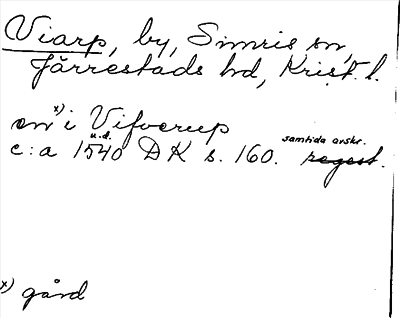 Viarp, by, Simris sn,
Järrestads hd, Krist. l.
en x) i Vifverup
u.d. samtida avskr.
c:a 1540 DK s. 160. regest.
x) gård